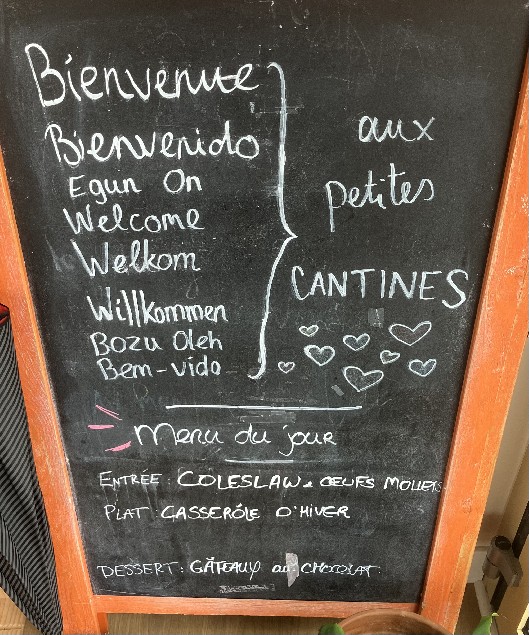 Bienvenue
Bienvenido
Egun On
Welcome
Welkom
Willkommen
Bozu Oleh
Bem-vido
aux
petites
CANTINES
Menu du jour
ENTRÉE : COLESLAW & OEUFS MOLLETS
PLAT : CASSERÔLE D'HIVER
DESSERT : GÂTEAUX au CHOCOLAT